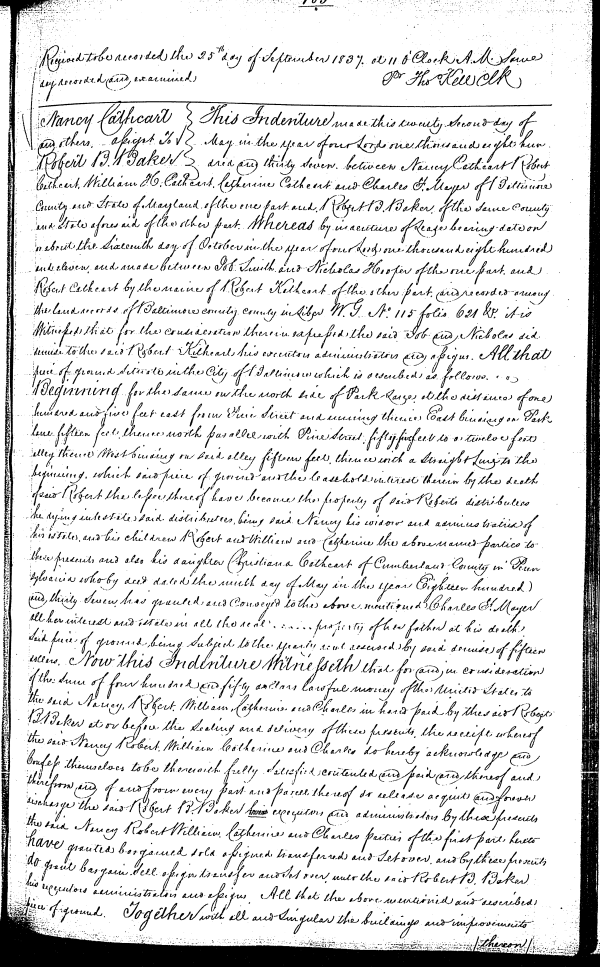 Received to be recorded the 25th day of September 1837. at 11 O'Clock A.M. Same
day recorded and examined Pr Thos Kell Clk
Nancy Cathcart This Indenture made this twenty second day of
and others. assignt To May in the year of our Lord one thousand eight hun
Robert B. Baker dred and thirty seven. between Nancy Cathcart Robert
Cathcart, William H. Cathcart, Catherine Cathcart and Charles F. Mayer of Baltimore
County and State of Maryland, of the one part and Robert B. Baker, of the same county
and State aforesaid of the other part. Whereas by indenture of Lease bearing date on
or about the sixteenth day of October in the year of our Lord one thousand eight hundred
and eleven, and made between Job Smith and Nicholas Hooper of the one part, and
Robert Cathcart by the name of Robert Kethcart of the other part, and recorded among
the land records of Baltimore county county in Liber W.G. No. 115 folio 621 &c. it is
Witnessed that for the consideration therein expressed the said Job and Nicholas did
demise to the said Robert Kethcart his executors administrators and assigns. All that
piece of ground situate in the City of Baltimore which is described as follows.
Beginning for the same on the north side of Park Lane, at the distance of one
hundred and five feet east from Pine Street and running thence East binding on Park
lane fifteen feet, thence north parallel with Pine Street, fifty feet to a twelve foot
alley thence West binding on said alley fifteen feet, thence with a straight Line to the
beginning. which said piece of ground and the leasehold interest therein by the death
of said Robert the lessee thereof have become the property of said Roberts distributees
he dying intestate, said distributees, being said Nancy his widow and administratrix of
his estate, and his children Robert and William and Catherine the above named parties to
these presents and also his daughter Christiana Cathcart of Cumberland County in Penn
sylvania who by deed dated the ninth day of May in the year Eighteen hundred
and thirty seven, has granted and conveyed to the above mentioned Charles F. Mayer
all her interest and estate in all the real property of her father at his death
said piece of ground being subject to the yearly rent reserved by said demise of fifteen
dollars. Now this Indenture Witnesseth that for and in consideration
of the sum of four hundred and fifty dollars lawful money of the United States to
the said Nancy, Robert, William, Catherine and Charles in hand paid by the said Robert
B. Baker at or before the sealing and delivery of these presents, the receipt whereof
the said Nancy Robert, William Catherine and Charles do hereby acknowledge and
confess themselves to be therewith fully satisfied contented and paid and thereof and
therefrom and of and from every part and parcel thereof do release acquit and forever
discharge the said Robert B. Baker executors and administrators by these presents
the said Nancy Robert William, Catherine and Charles parties of the first part hereto
have granted bargained sold assigned transferred and set over, and by these presents
do grant bargain sell assign transfer and set over, unto the said Robert B. Baker
his executors administrators and assigns. All that the above mentioned and described
piece of ground. Together with all and singular the buildings and improvements
thereon